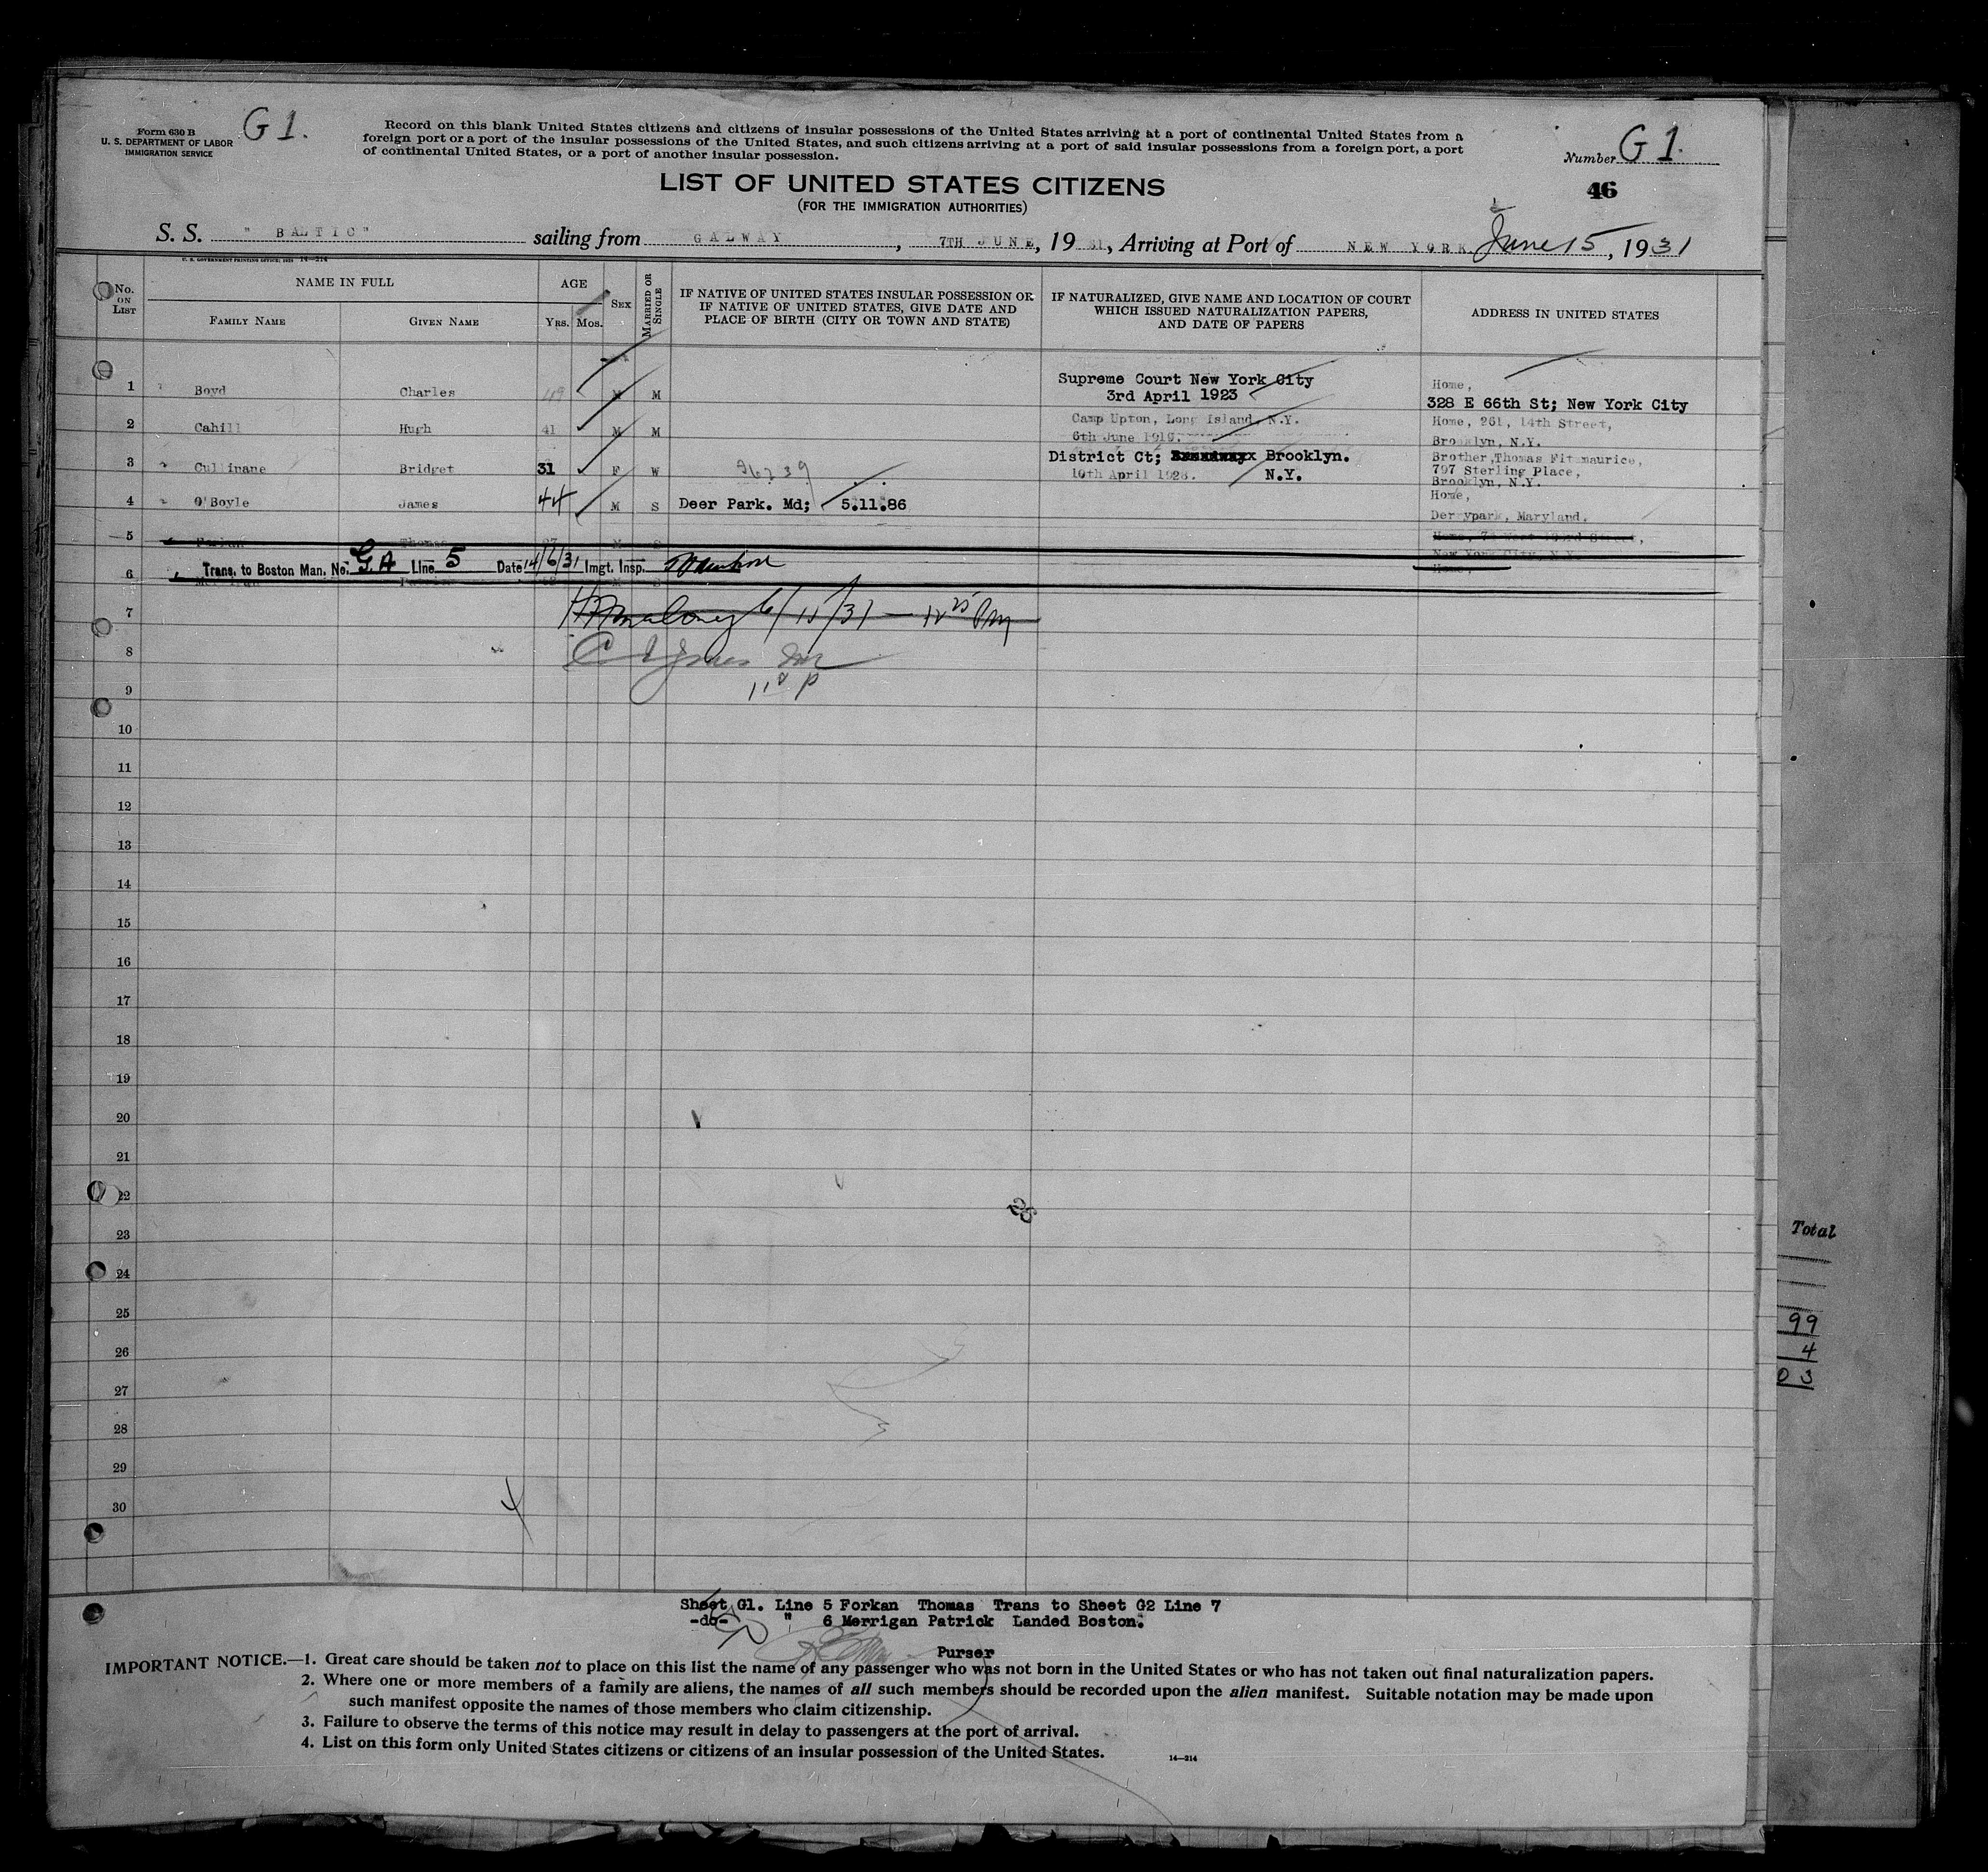 Form 630 B
U. S. DEPARTMENT OF LABOR
IMMIGRATION SERVICE
G 1.
Record on this blank United States citizens and citizens of insular possessions of the United States arriving at a port of continental United States from a
foreign port or a port of the insular possessions of the United States, and such citizens arriving at a port of said insular possessions from a foreign port, a port
of continental United States, or a port of another insular possession.
Number G 1.
46
LIST OF UNITED STATES CITIZENS
(FOR THE IMMIGRATION AUTHORITIES)
S. S. "BALTIC" sailing from GALWAY, 7TH JUNE, 1931, Arriving at Port of NEW YORK June 15, 1931
U. S. GOVERNMENT PRINTING OFFICE: 14—214
No. ON LIST
NAME IN FULL
FAMILY NAME
GIVEN NAME
AGE
YRS.
MOS.
SEX
MARRIED OR SINGLE
IF NATIVE OF UNITED STATES INSULAR POSSESSION OR
IF NATIVE OF UNITED STATES, GIVE DATE AND
PLACE OF BIRTH (CITY OR TOWN AND STATE)
IF NATURALIZED, GIVE NAME AND LOCATION OF COURT
WHICH ISSUED NATURALIZATION PAPERS,
AND DATE OF PAPERS
ADDRESS IN UNITED STATES
1 Boyd Charles 49 M M Supreme Court New York City
3rd April 1923
Home,
328 E 66th St; New York City
2 Cahill Hugh 41 M M Camp Upton, Long Island, N.Y.
6th June
Home, 261, 14th Street,
Brooklyn, N.Y.
3 Cullinane Bridget 31 F W 96739 District Ct; Brooklyn.
10th April 1928. N.Y.
Brother, Thomas Fitzmaurice,
797 Sterling Place,
Brooklyn, N.Y.
4 O'Boyle James 44 M S Deer Park. Md; 5.11.86
Home,
Derrypark, Maryland.
5 Thomas 27 M S
New York City, N.Y.
Trans. to Boston Man. No. G.A Line 5 Date 14/6/31 Imgt. Insp.
6 Home,
7 6/15/31 — 12 25 Pm
8
9
10
11
12
13
14
15
16
17
18
19
20
21
22
23
24
25
26
27
28
29
30
4
Total
99
4
03
Sheet G1. Line 5 Forkan Thomas Trans to Sheet G2 Line 7
-do- " 6 Merrigan Patrick Landed Boston.
Purser
IMPORTANT NOTICE.—1. Great care should be taken not to place on this list the name of any passenger who was not born in the United States or who has not taken out final naturalization papers.
2. Where one or more members of a family are aliens, the names of all such members should be recorded upon the alien manifest. Suitable notation may be made upon
such manifest opposite the names of those members who claim citizenship.
3. Failure to observe the terms of this notice may result in delay to passengers at the port of arrival.
4. List on this form only United States citizens or citizens of an insular possession of the United States.
14—214